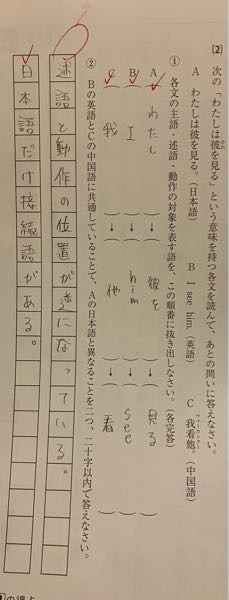 (2) 次の「わたしは彼を見る」という意味を持つ各文を読んで、あとの問いに答えなさい。
A わたしは彼を見る。(日本語) B I see him.(英語) C 我看他。(中国語)
ウォーカンター
① 各文の主語・述語・動作の対象を表す語を、この順番に抜き出しなさい。(各完答)
A わたし → 彼を → 見る
B I → him → see
C 我 → 他 → 看
② Bの英語とCの中国語に共通していることで、Aの日本語と異なることを二つ、二十字以内で答えなさい。
述語と動作の位置が逆になっている。
日本語だけ接続語がある。